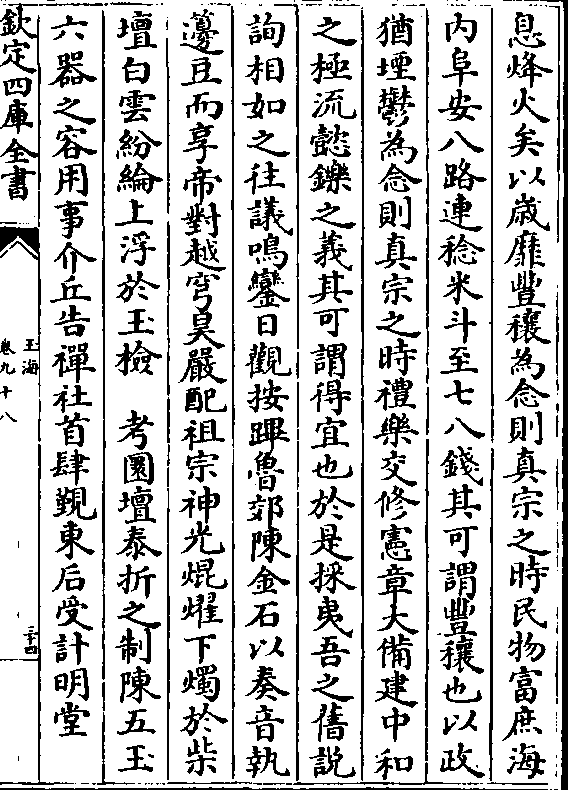 息烽火矣以歳靡豐穰為念則真宗之時民物富庶海
内阜安八路連稔米斗至七八錢其可謂豐穰也以政
猶堙鬱為念則真宗之時禮樂交修憲章大備建中和
之極流懿鑠之義其可謂得宜也於是採夷吾之舊説
詢相如之往議鳴鑾日觀按蹕魯郊陳金石以奏音執
籩豆而享帝對越穹昊嚴配祖宗神光焜燿下燭於柴
壇白雲紛綸上浮於玉檢 考圜壇泰折之制陳五玉
六器之容用事介丘告禪社首肆覲東后受計明堂
欽定四庫全書
玉海
卷九十八
三十四